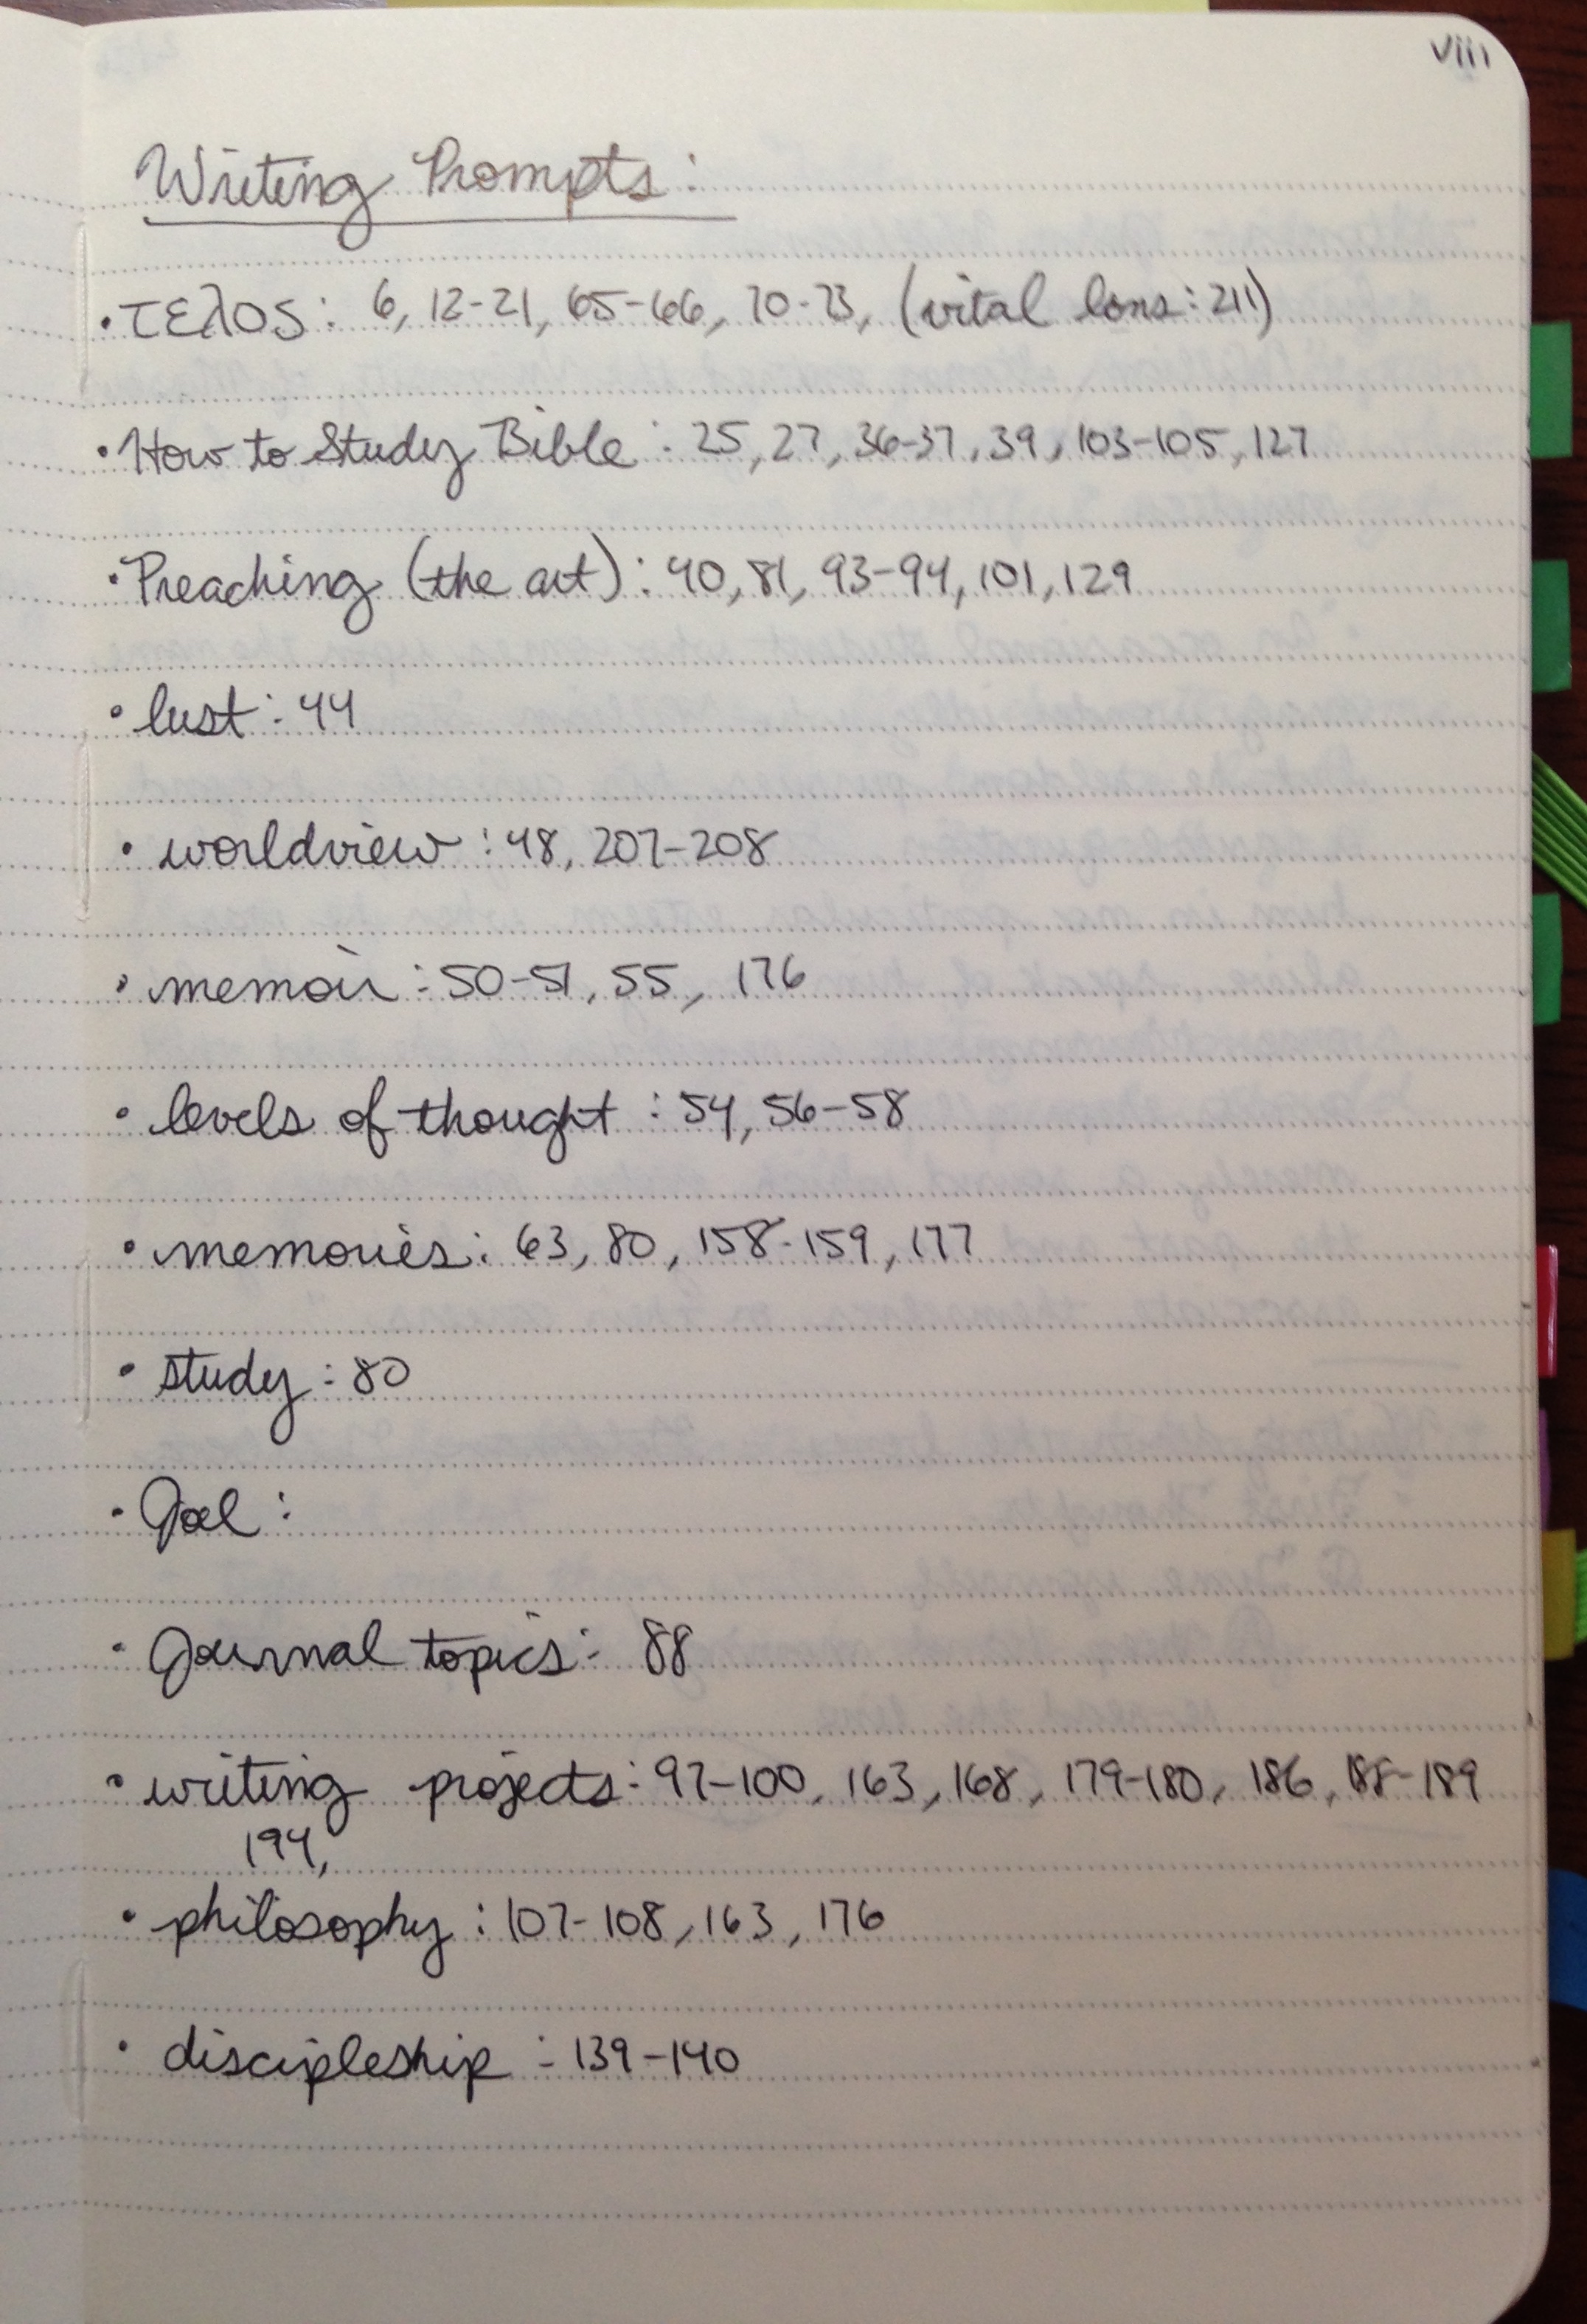 viii
Writing Prompts:
• τελος: 6, 12-21, 65-66, 70-73, (vital lens: 211)
• How to Study Bible: 25, 27, 36-37, 39, 103-105, 127
• Preaching (the art): 40, 81, 93-94, 101, 129
• lust: 44
• worldview: 48, 207-208
• memoir: 50-51, 55, 176
• levels of thought: 54, 56-58
• memories: 63, 80, 158-159, 177
• study: 80
• Joel:
• Journal topics: 88
• writing projects: 97-100, 163, 168, 179-180, 186, 188-189
194,
• philosophy: 107-108, 163, 176
• discipleship: 139-140